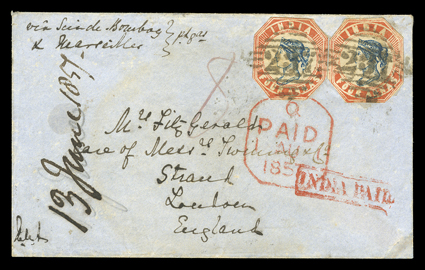 via Scinde Bombay
& Marseilles
INDIA
INDIA
13 June 1857
PAID
185
Mrs Fitz Gerald
Care of Messrs Twining & Co
Strand
London
England
INDIA PAID